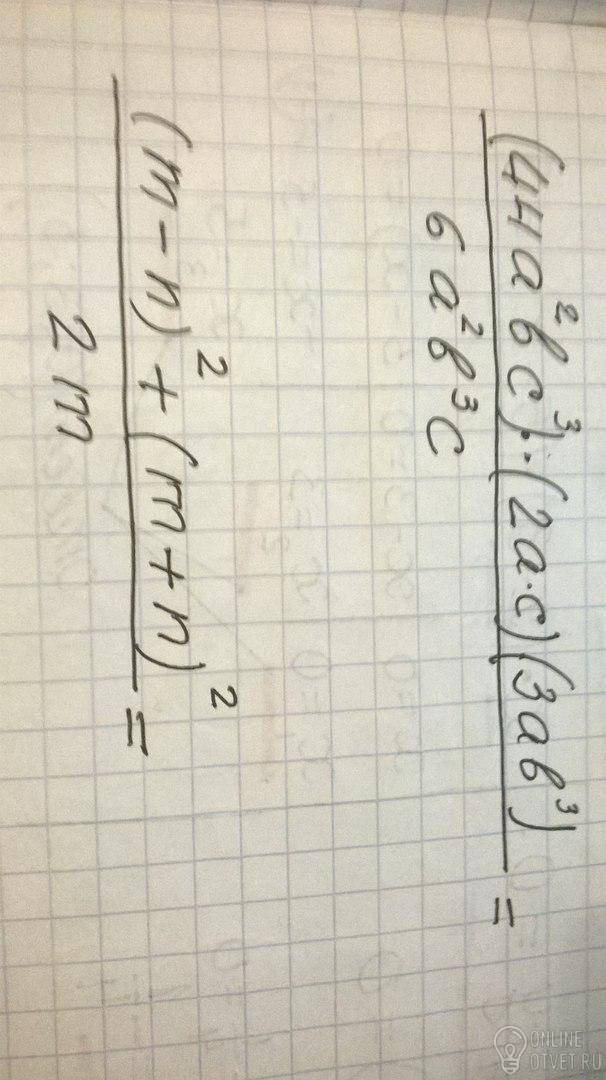 (44a²bc³)·(2a·c)(3ab³) =
6a²b³c
(m-n)²+(m+n)² =
2m
ONLINE
OTVET.RU